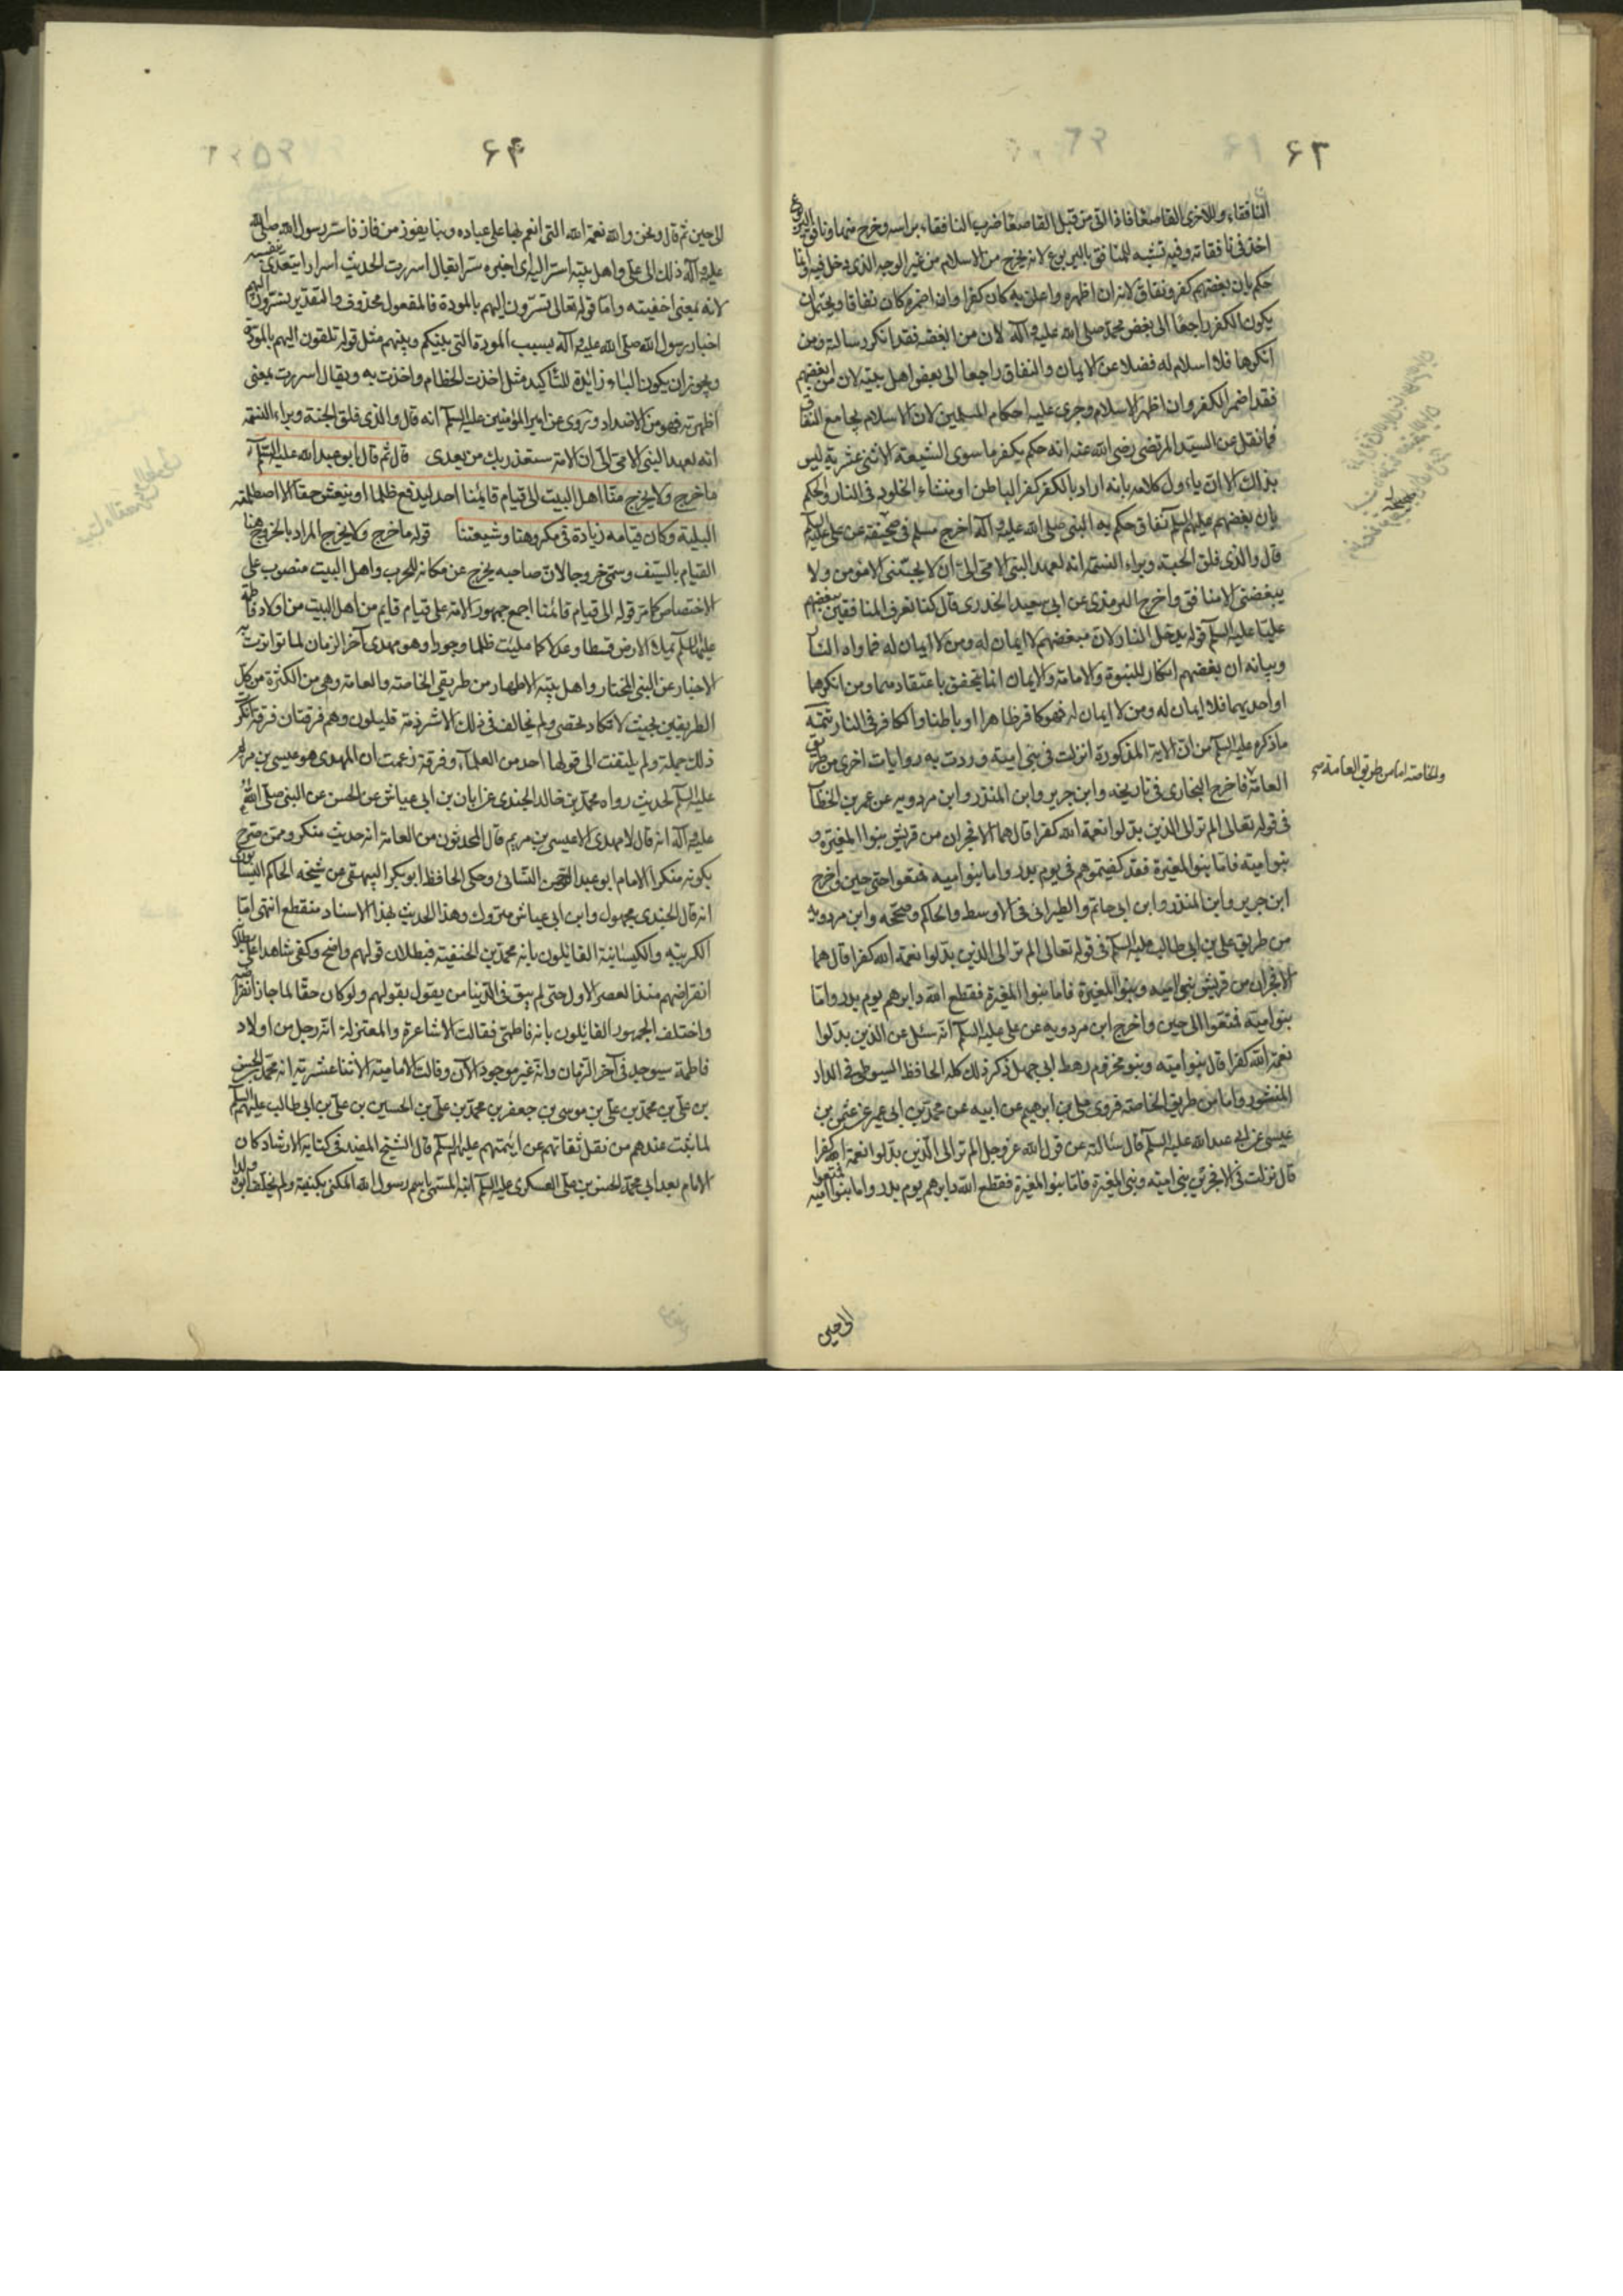 ٦٣
النافقاء وللاخرى القاصعا فاذا اتى من قبل القاصعا ضرب النافقاء براسه وخرج منها ونافق اليربوع
اخذ فى نافقائه وفيه تشبيه للمنافق باليربوع لانه يخرج من الاسلام من غير الوجه الذى دخل فيه وانما
حكم بان بغضهم كفر ونفاق لانه ان اظهره واعلن به كان كفرا وان اضمره كان نفاقا ويحتمل ان
يكون الكفر راجعا الى بغض محمد صلى الله عليه وآله لان من ابغضه فقد انكر رسالته ومن
انكرها فلا اسلام له فضلا عن الايمان والنفاق راجعا الى بغض اهل بيته لان من ابغضهم
فقد اضمر الكفر وان اظهر الاسلام وجرى عليه احكام المسلمين لان الاسلام يجامع النفاق
فما نقل عن السيد المرتضى رضى الله عنه انه حكم بكفر ما سوى الشيعة الاثنى عشرية ليس
بذلك الا ان ياول كلامه بانه اراد بالكفر كفر الباطن او منشاء الخلود فى النار والحكم
بان بغضهم عليهم السلم نفاق حكم به النبى صلى الله عليه وآله اخرج مسلم فى صحيحه عن على عليه السلم
قال والذى فلق الحبة وبراء النسمة انه لعهد النبى الامى الى ان لا يحبنى الا مؤمن ولا
يبغضنى الا منافق واخرج الترمذى عن ابى سعيد الخدرى قال كنا نعرف المنافقين ببغضهم
عليا عليه السلم قوله يدخل النار لان مبغضهم لا ايمان له ومن لا ايمان له فماواه النار
وبيانه ان بغضهم انكار للنبوة والامامة والايمان انما يتحقق باعتقادهما ومن انكرهما
او احديهما فلا ايمان له ومن لا ايمان له فهو كافر ظاهرا او باطنا والكافر فى النار تتمة
ما ذكره عليه السلم من ان الاية المذكورة انزلت فى بنى امية وردت به روايات اخرى من طريق
والخاصة اما من طريق العامة صح
العامة فاخرج البخارى فى تاريخه وابن جرير وابن المنذر وابن مردويه عن عمر بن الخطاب
فى قوله تعالى الم تر الى الذين بدلوا نعمة الله كفرا قال هما الافجران من قريش بنوا المغيرة و
بنوا امية فاما بنوا المغيرة فقد كفيتموهم فى يوم بدر واما بنوا امية فمتعوا حتى حين واخرج
ابن جرير وابن المنذر وابن ابى حاتم والطبرانى فى الاوسط والحاكم وصححه وابن مردويه
من طريق على بن ابى طالب عليه السلم فى قوله تعالى الم تر الى الذين بدلوا نعمة الله كفرا قال هما
الافجران من قريش بنوا امية وبنوا المغيرة فاما بنوا المغيرة فقطع الله دابرهم يوم بدر واما
بنوا امية فمتعوا الى حين واخرج ابن مردويه عن على عليه السلم انه سئل عن الذين بدلوا
نعمة الله كفرا قال بنوا امية وبنو مخزوم رهط ابى جهل ذكر ذلك كله الحافظ السيوطى فى الدر
المنثور واما من طريق الخاصة فروى على بن ابرهيم عن ابيه عن محمد بن ابى عمير عن عثمن بن
عيسى عن ابى عبد الله عليه السلم قال سالته عن قول الله عز وجل الم تر الى الذين بدلوا نعمة الله كفرا
قال نزلت فى الافجرين بنى امية وبنى المغيرة فاما بنوا المغيرة فقطع الله دابرهم يوم بدر واما بنوا امية فمتعوا
الى حين
٦٤
الى حين ثم قال ونحن والله نعمة الله التى انعم بها على عباده وبنا يفوز من فاز فاسر رسول الله صلى الله
عليه وآله ذلك الى على واهل بيته اسر اليه اى اخبره سرا يقال اسررت الحديث اسرارا يتعدى بنفسه
لانه بمعنى اخفيته واما قوله تعالى تسرون اليهم بالمودة فالمفعول محذوف والتقدير تسرون اليهم
اخبار رسول الله صلى الله عليه وآله بسبب المودة التى بينكم وبينهم مثل قوله تلقون اليهم بالمودة
ويجوز ان يكون الباء زائدة للتاكيد مثل اخذت الخطام واخذت به ويقال اسررت بمعنى
اظهرته فهو من الاضداد وروى عن امير المؤمنين عليه السلم انه قال والذى فلق الحبة وبراء النسمة
انه لعهد النبى الامى الى ان الامة ستغدر بك من بعدى قال ثم قال ابو عبد الله عليه السلم
ما خرج ولا يخرج منا اهل البيت الى قيام قائمنا احد ليدفع ظلما او ينعش حقا الا اصطلمته
البلية وكان قيامه زيادة فى مكروهنا وشيعتنا قوله ما خرج ولا يخرج المراد بالخروج هنا
القيام بالسيف وسمى خروجا لان صاحبه يخرج عن مكانه للحرب واهل البيت منصوب على
الاختصاص كما مر قوله الى قيام قائمنا اجمع جمهور الامة على قيام قايم من اهل البيت من اولاد فاطمة
عليها السلم يملا الارض قسطا وعدلا كما ملئت ظلما وجورا وهو مهدى آخر الزمان لما تواترت به
الاخبار عن النبى المختار واهل بيته الاطهار من طريقى الخاصة والعامة وهى من الكثرة من كل
الطريقين بحيث لا تكاد تحصى ولم يخالف فى ذلك الا شرذمة قليلون وهم فرقتان فرقة انكرت
ذلك جملة ولم يلتفت الى قولها احد من العلماء وفرقة زعمت ان المهدى هو عيسى بن مريم
عليه السلم لحديث رواه محمد بن خالد الجندى عن ابان بن ابى عياش عن الحسن عن النبى صلى الله
عليه وآله انه قال لا مهدى الا عيسى بن مريم قال المحدثون من العامة انه حديث منكر وممن صرح
بكونه منكرا الامام ابو عبد الرحمن النسائى وحكى الحافظ ابو بكر البيهقى عن شيخه الحاكم النيسابورى
انه قال الجندى مجهول وابن ابى عياش متروك وهذا الحديث بهذا الاسناد منقطع انتهى اما
الكربية والكيسانية القايلون بانه محمد بن الحنفية فبطلان قولهم واضح وكفى شاهدا على بطلانه
انقراضهم منذ العصر الاول حتى لم يبق فى الدنيا من يقول بقولهم ولو كان حقا لما جاز انقراضه
واختلف الجمهور القايلون بانه فاطمى فقالت الاشاعرة والمعتزلة انه رجل من اولاد
فاطمة سيوجد فى آخر الزمان وانه غير موجود الآن وقالت الامامية الاثنا عشرية انه محمد بن الحسن
بن على بن محمد بن على بن موسى بن جعفر بن محمد بن على بن الحسين بن على بن ابى طالب عليهم السلم
لما ثبت عندهم من نقل ثقاتهم عن ائمتهم عليهم السلم قال الشيخ المفيد فى كتابه الارشاد كان
الامام بعد ابى محمد الحسن بن على العسكرى عليه السلم ابنه المسمى باسم رسول الله المكنى بكنيته ولم يخلف ابوه ولدا